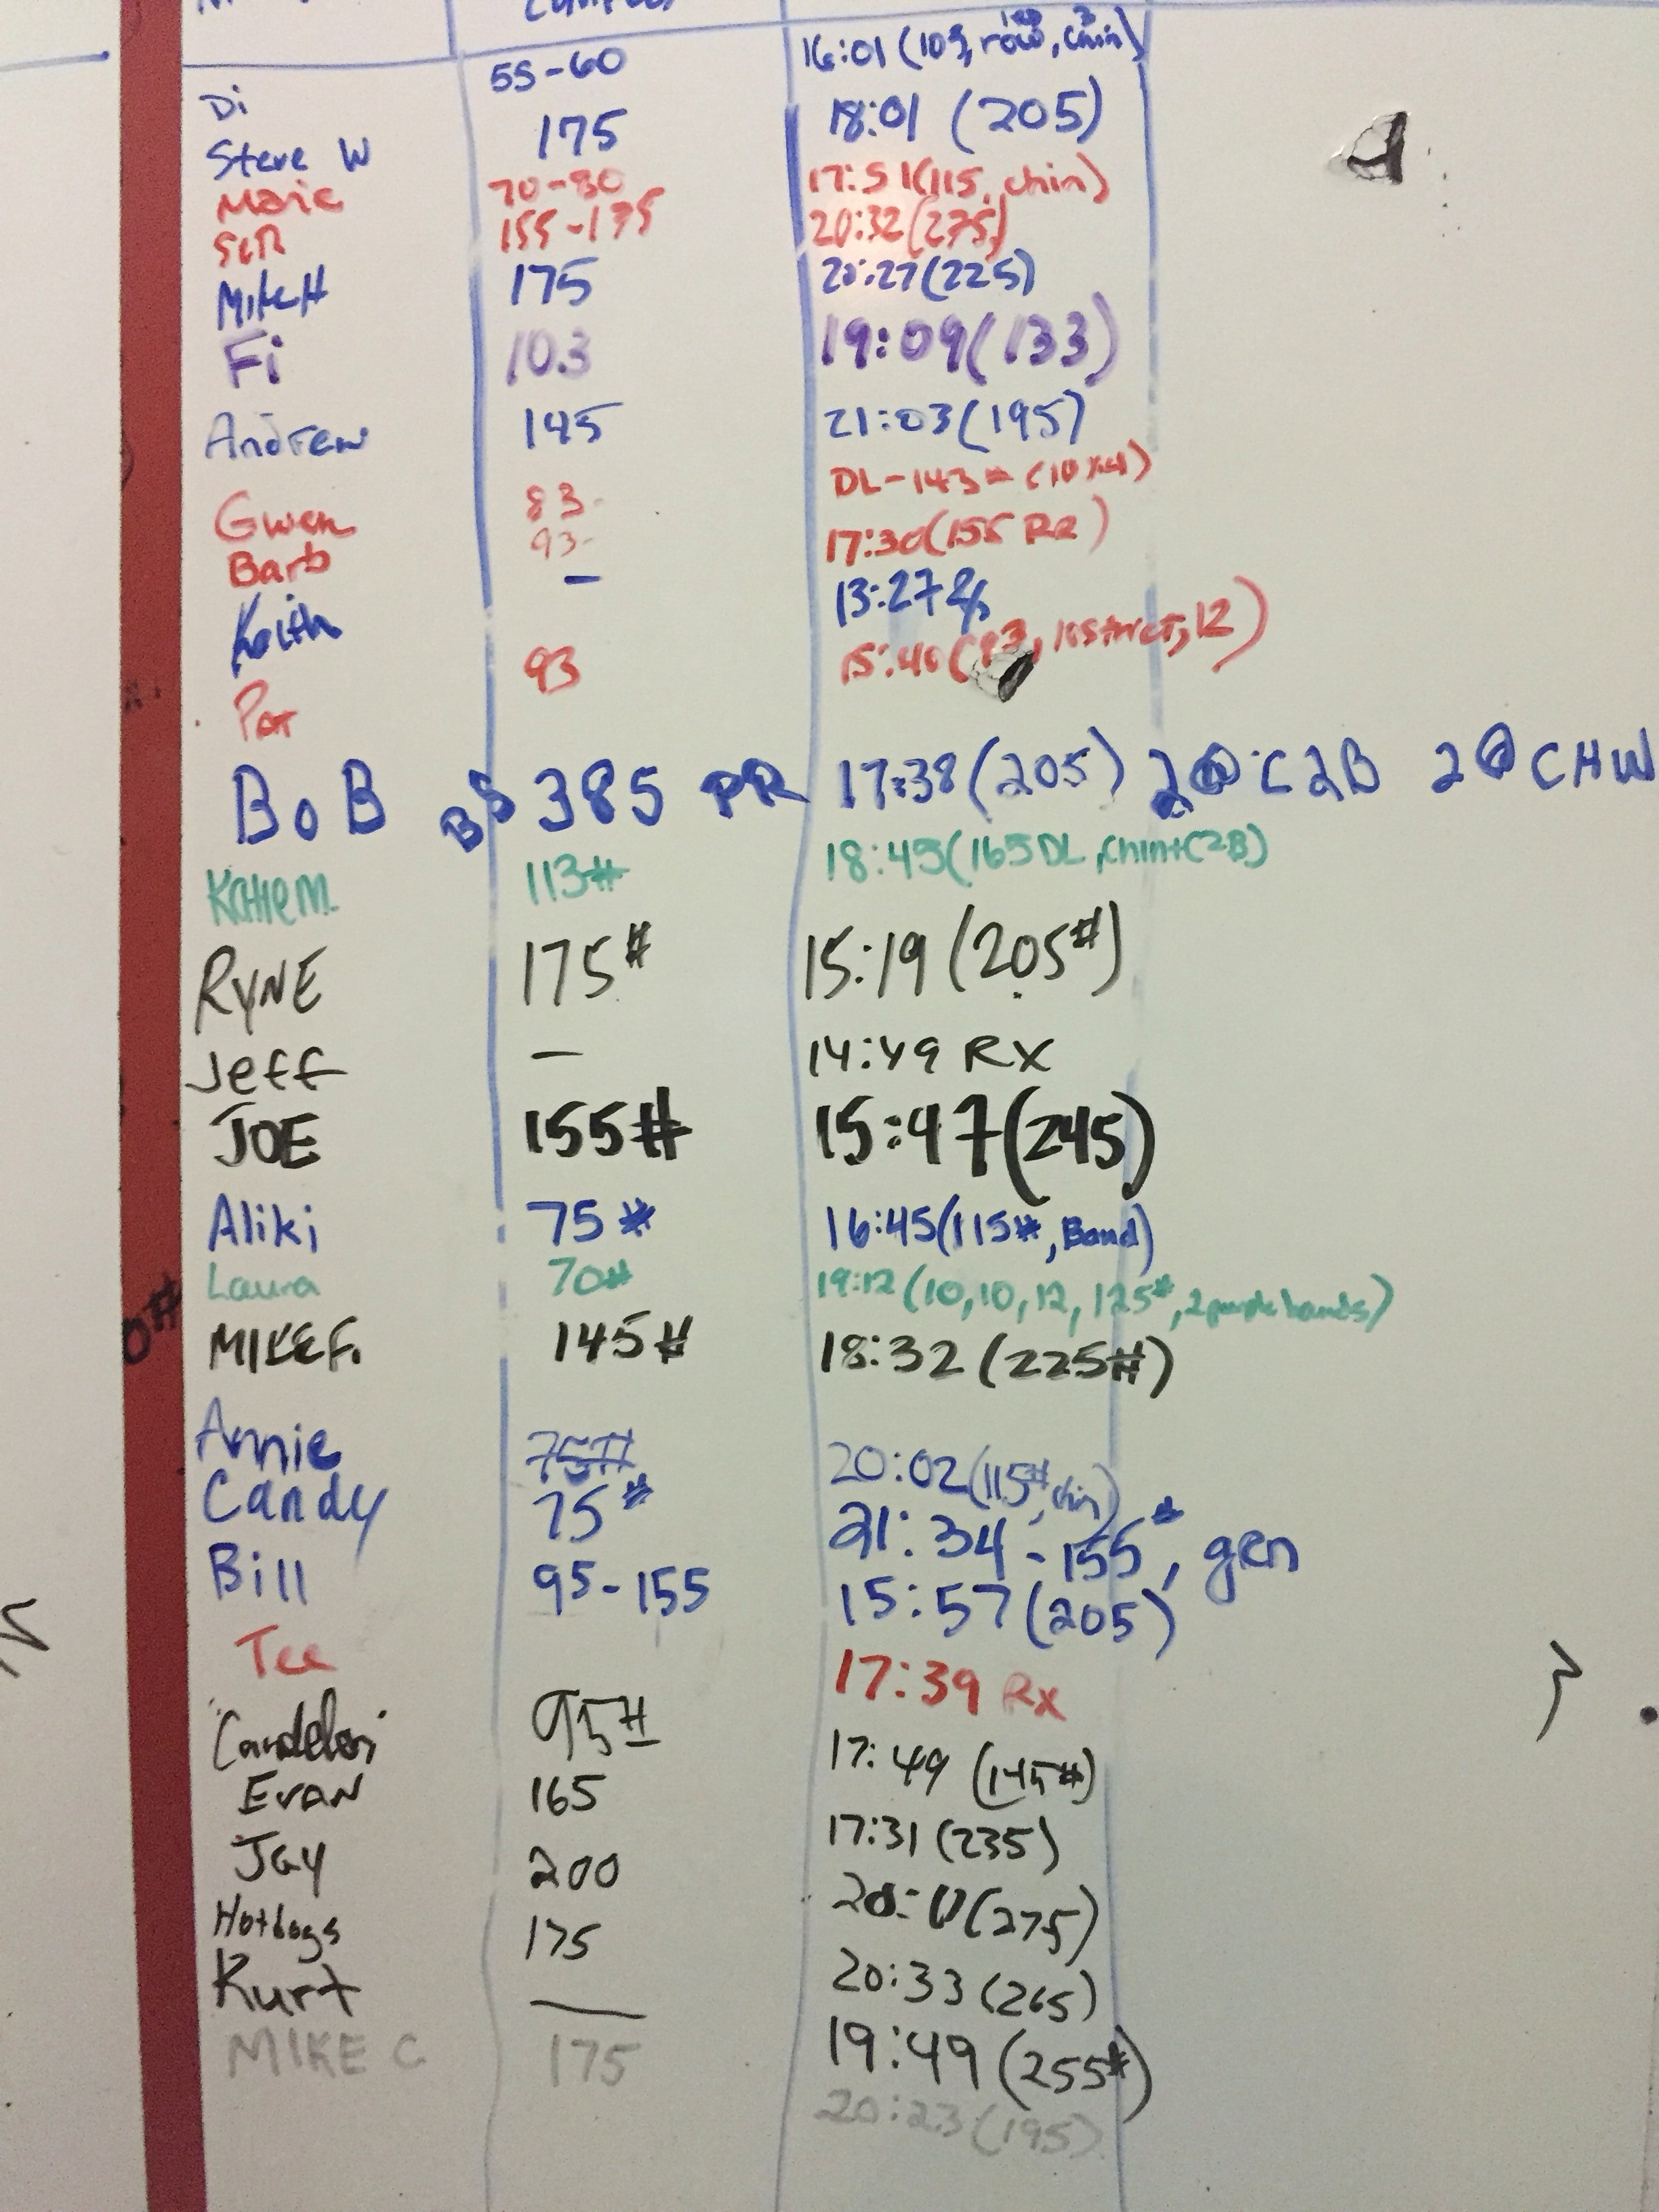 Di 55-60 16:01 (103, row, chin)
Steve W 175 18:01 (205)
Marie 70-80 17:51 (115, chin)
155-175 20:32 (275)
Mike H 175 20:27 (225)
Fi 103 19:09 (133)
Andrew 145 21:03 (195)
Gwen 83 DL-143# (10 
Barb 93 17:30 (155 Rx)
Keith — 13:27
Pat 93 15:40 (93, 12)
BoB BS 385 PR 17:38 (205) 2@C2B 2@CHW
Katie M. 113# 18:45 (165 DL, chin+C2B)
RYNE 175# 15:19 (205#)
Jeff — 14:49 RX
JOE 155# 15:47 (245)
Aliki 75# 16:45 (115#, Band)
Laura 70# 19:12 (10, 10, 12, 125#, 2 purple bands)
0#
MIKE F. 145# 18:32 (225#)
Annie 75# 20:02 (115#, chin)
Candy 75# 21:34 - 155#, grn
Bill 95-155 15:57 (205)
Tee 17:39 Rx
95# 17:49 (145#)
Evan 165 17:31 (235)
Jay 200 (275)
Hotdogs 175 20:33 (265)
Kurt — 19:49 (255#)
MIKE C 175 20:23 (195)